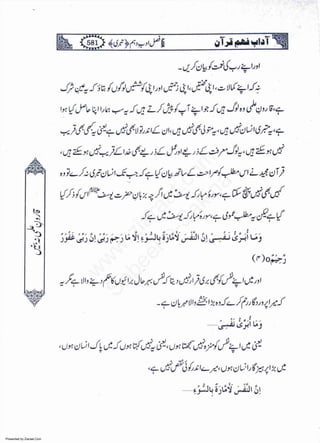 آداب فہم قرآن
فصل ادب دہم ﴿تبری﴾
581
اور اپنے رب کی نعمت کو بیان کریں۔
نہ کہ اپنے کمالات، اپنی محنتیں، اپنی زحمتیں اور اپنی کوششیں لوگوں کو بتاؤ کہ یہ عین شرک
ہے، قارون علمی وہ لوگ ہیں کہ جو اپنے آپ کو پیش کرتے ہیں کہ یہ سب ہمارا اپنا حاصل کیا ہوا
ہے، یہ تبری انسان نہیں ہیں، یہ متولی بھی نہیں ہیں، ان کے اندر تولا بھی نہیں ہے یعنی یہ کبھی بھی قریب
نہیں ہو سکتے، یہ لوگ معرفت کے ذریعے اور عمل کے ذریعے بھی خدا کے قریب نہیں ہو سکتے ہیں،
قرآن مجید نے اس مطلب کو صراحت کے ساتھ بیان کیا ہے کہ جب تک انسان تبری نہ کرے تو وہ
کہیں بھی نہیں پہنچ سکتا ہے، سورۂ مبارکہ یوسف میں اگرچہ بزبان حضرت یوسف اس کو ذکر کیا
گیا ہے لیکن یہ مطلب عمومی ہے، سورۂ مبارکہ یوسف میں ہے کہ
وَمَا أُبَرِّئُ نَفْسِي إِنَّ النَّفْسَ لَأَمَّارَةٌ بِالسُّوءِ إِلَّا مَا رَحِمَ رَبِّي إِنَّ رَبِّي غَفُورٌ
رَحِيمٌ
اور میں اپنے نفس کو بھی بری قرار نہیں دیتا کہ نفس بہرحال برائیوں کا حکم دینے والا ہے مگر یہ
کہ میرا پروردگار رحم کرے کہ وہ بڑا بخشنے والا مہربان ہے۔
وَمَا أُبَرِّئُ نَفْسِي......
یعنی میں اپنے نفس کو منزہ نہیں سمجھتا ہوں، یعنی یہ نہیں کہتا ہوں کہ میں پاک انسان ہوں،
میں بڑا پرہیزگار انسان ہوں، میرے اندر کوئی نقص نہیں ہے،
إِنَّ النَّفْسَ لَأَمَّارَةٌ بِالسُّوءِ......
Presented by Ziaraat.Com